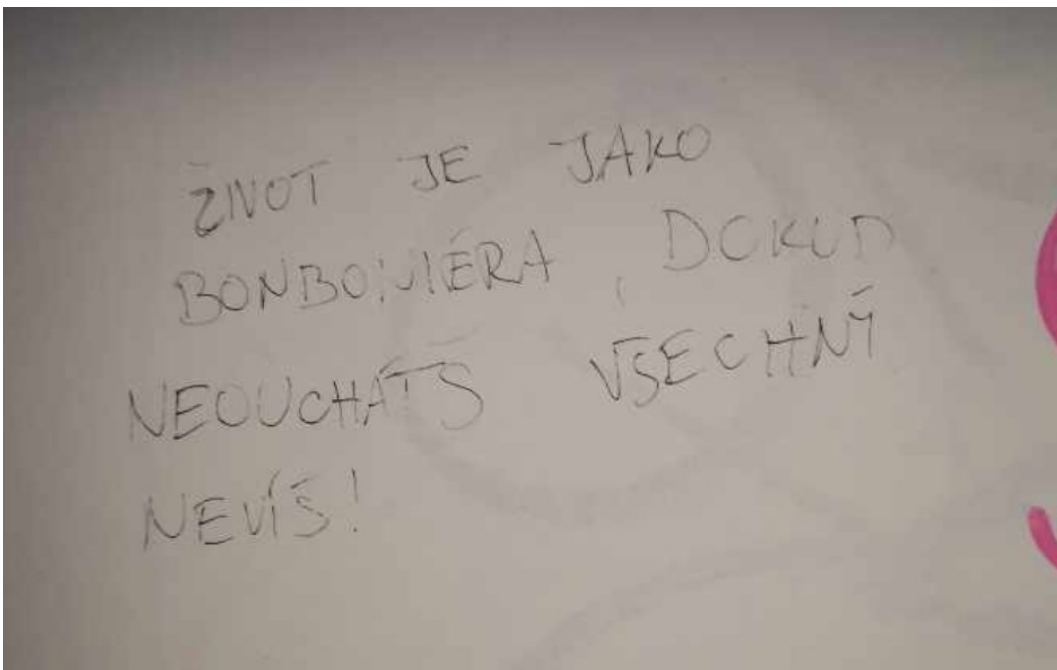 ŽIVOT JE JAKO
BONBONIÉRA, DOKUD
NEOUCHÁTŠ VŠECHNY
NEVÍŠ!